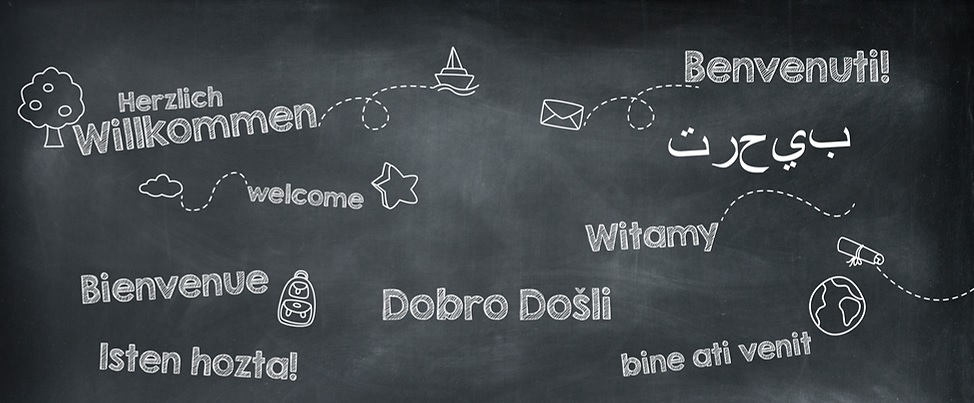 Herzlich
Willkommen
Benvenuti!
بيحرت
welcome
Witamy
Bienvenue
Dobro Došli
Isten hozta!
bine ati venit